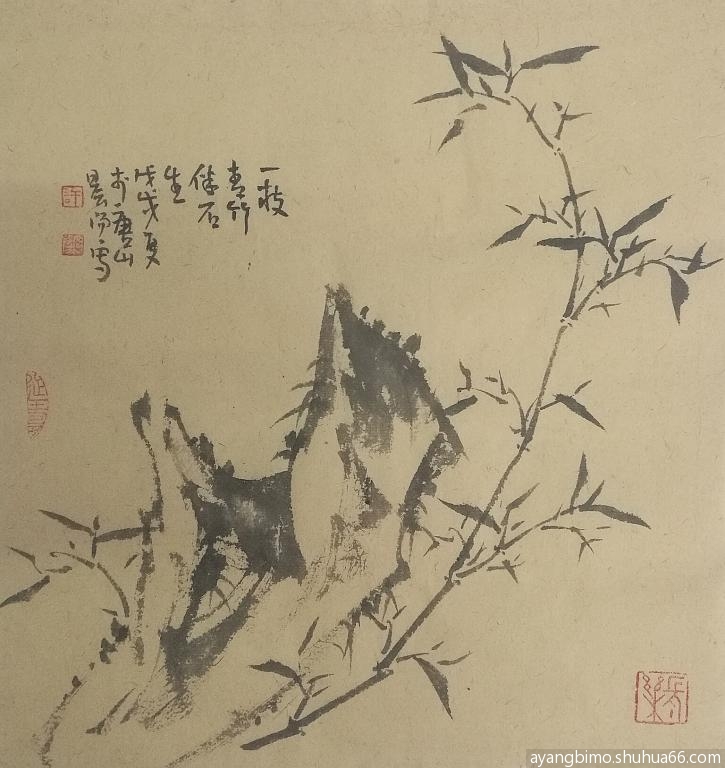 一枝
青竹
伴石
生
戊戌夏
于唐山
晨阳写
许
延寿
ayangbimo.shuhua66.com